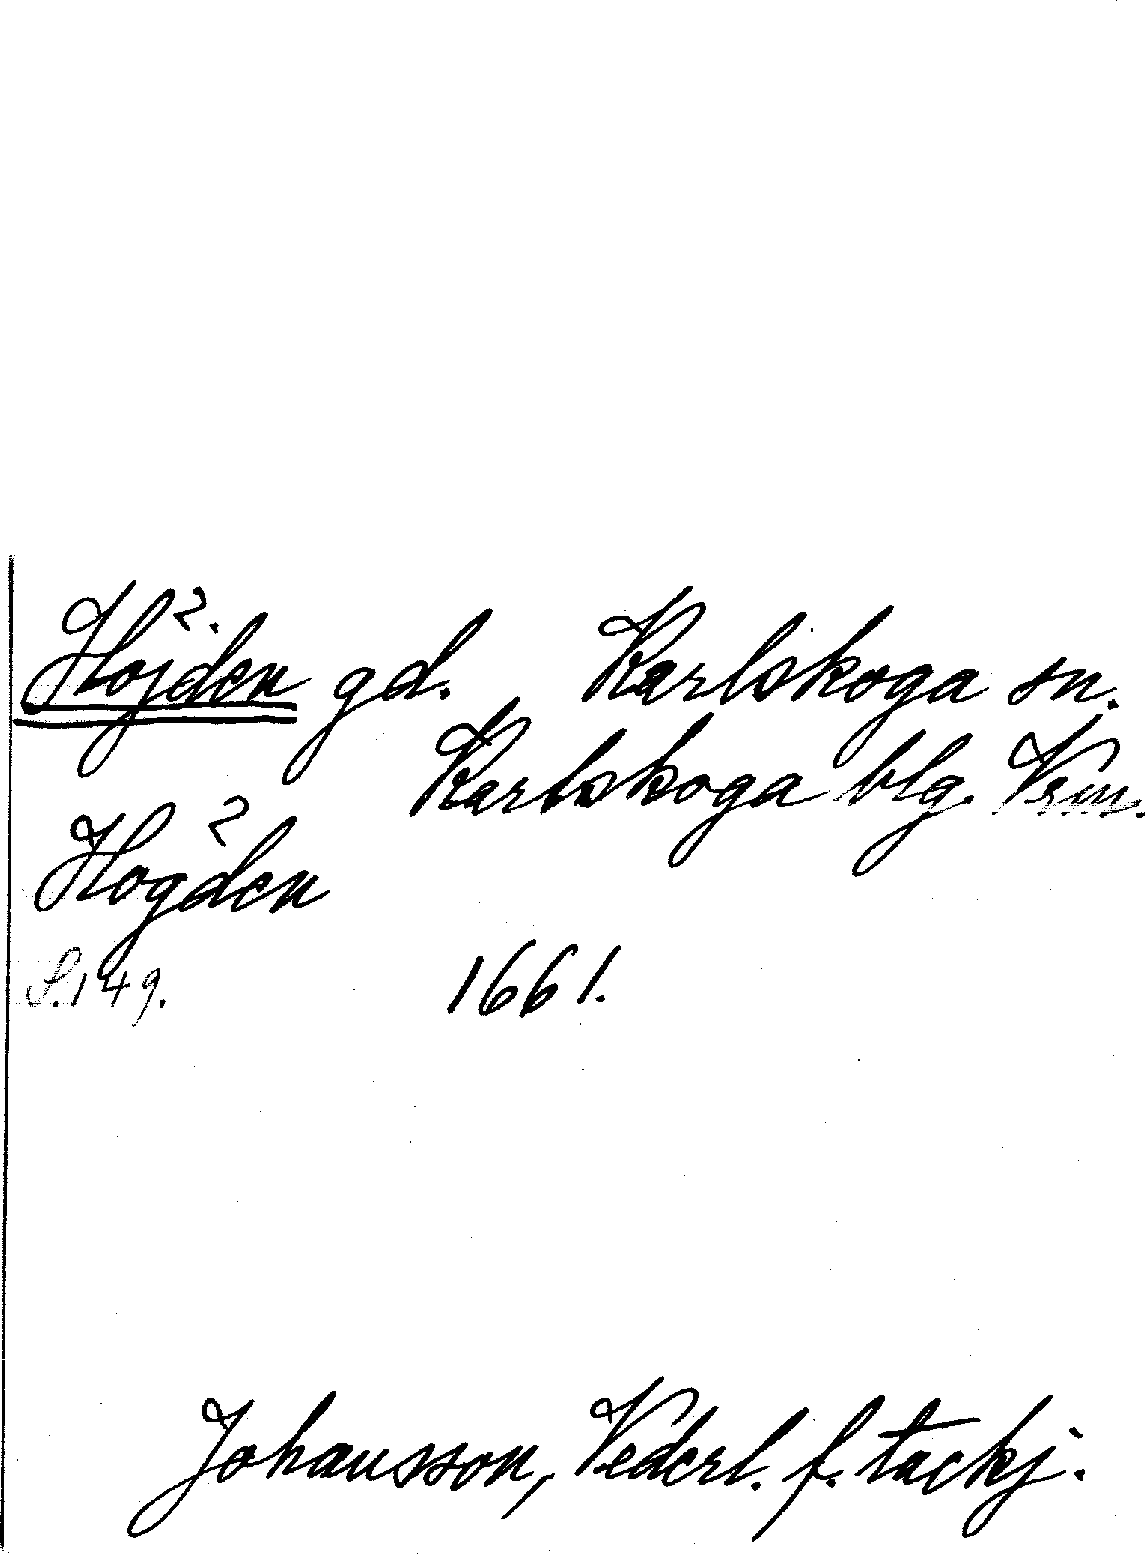 Höjden gd. Karlskoga sn.
Karlskoga blg. Vrm.
Högden
S. 149. 1661.
Johansson, Vederl. f. tackj.